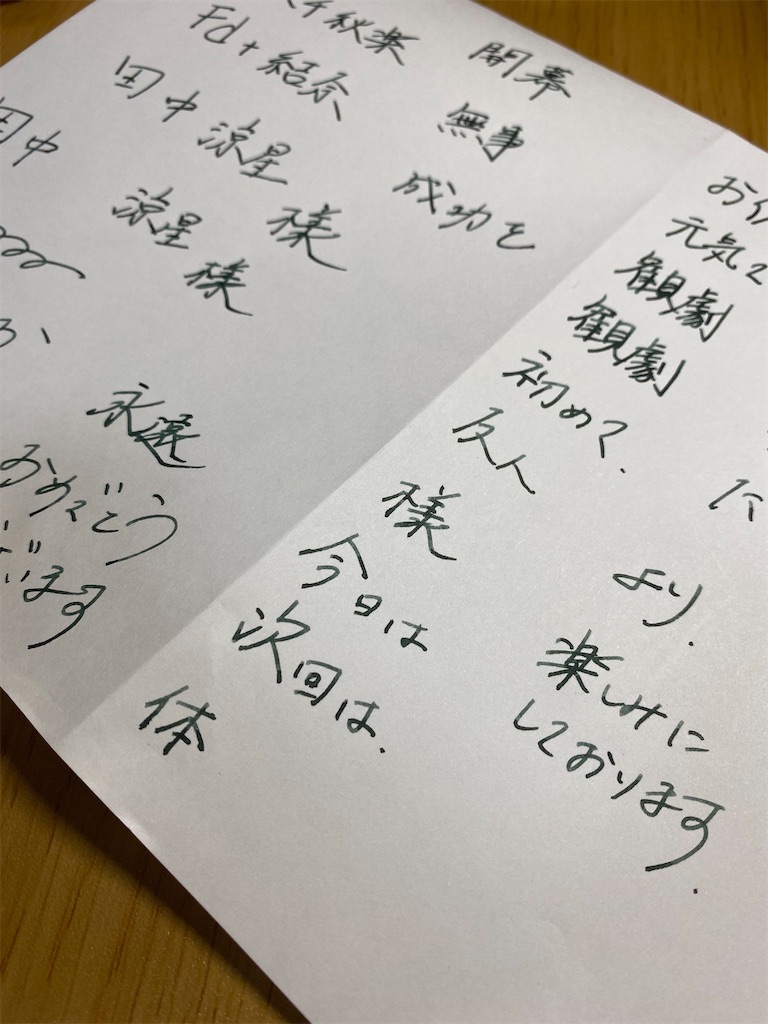 千秋楽
Fd+結奈
田中涼星
様
田中
涼星
様
永遠
おめでとう
ざいます
開幕
無事
成功を
元気
観劇
観劇
初めて、
友人
様
今日は
次回は、
体
より、
楽しみに
しております。